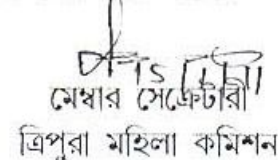 মেম্বার সেক্রেটারী
ত্রিপুরা মহিলা কমিশন